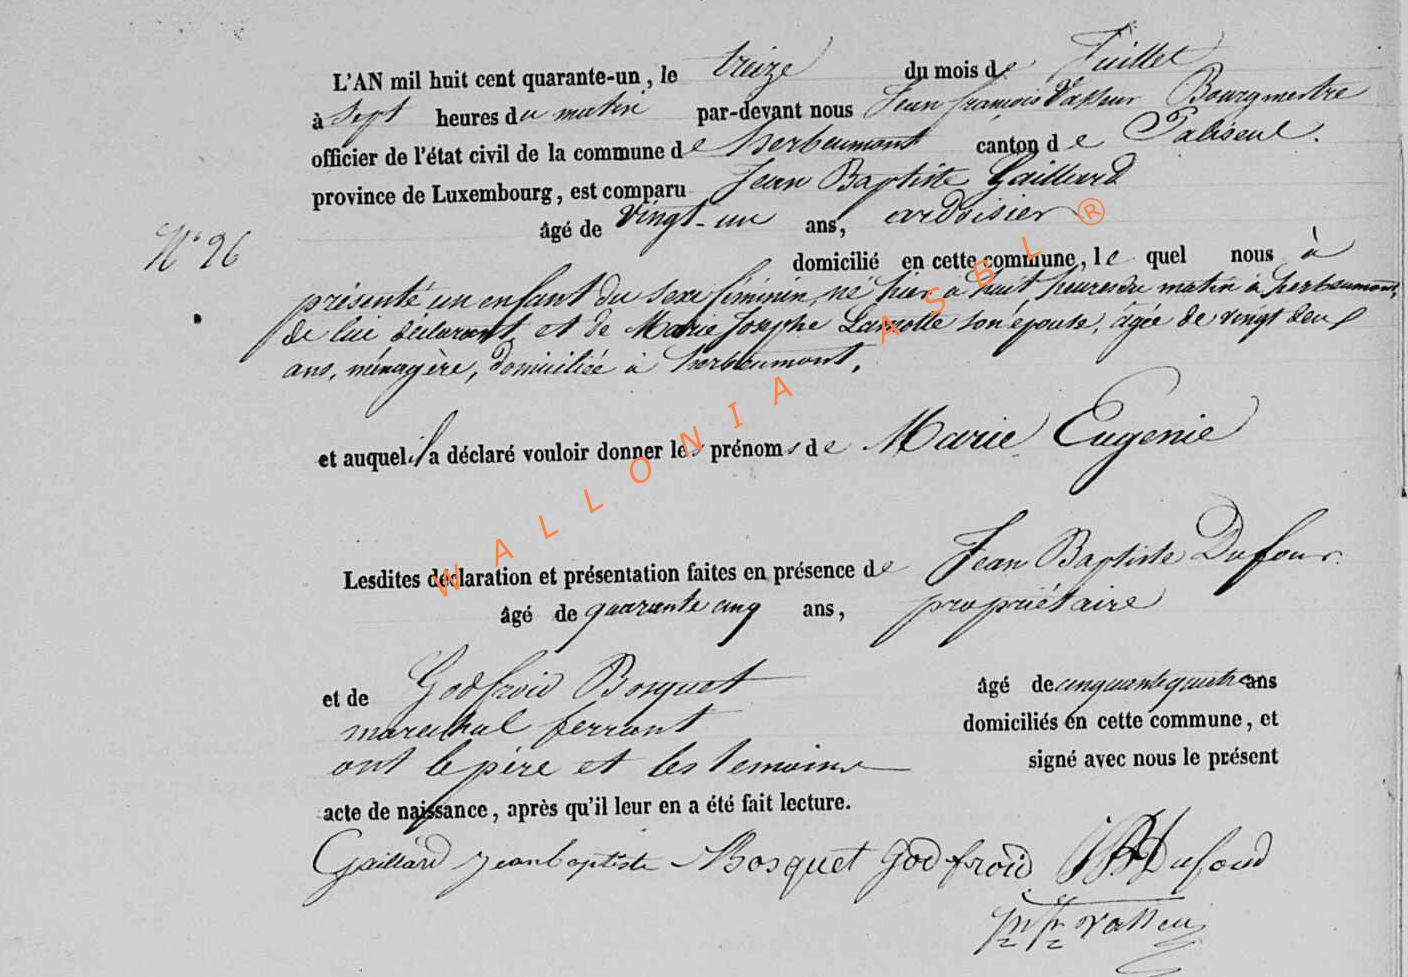 L'AN mil huit cent quarante-un, le treize du mois de Juillet
à sept heures du matin par-devant nous Jean françois Vasseur Bourgmestre
officier de l'état civil de la commune de herbeumont canton de Paliseul.
province de Luxembourg, est comparu Jean Baptiste Gaillard
âgé de vingt-un ans, ardoisier
N° 26
domicilié en cette commune, le quel nous à
présenté un enfant du sexe féminin, né hier à huit heures du matin à herbeumont,
de lui déclarant, et de Marie Josephe Lamotte son épouse, âgée de vingt deux
ans, ménagère, domiciliée à herbeumont.
et auquel il a déclaré vouloir donner les prénoms de Marie Eugenie
Lesdites déclaration et présentation faites en présence de Jean Baptiste Dufour.
âgé de quarante cinq ans, propriétaire
et de Godfroid Bosquet âgé de cinquante quatre ans
marechal ferrant domiciliés en cette commune, et
ont le père et les temoins signé avec nous le présent
acte de naissance, après qu'il leur en a été fait lecture.
Gaillard jean baptiste Bosquet godfroid Dufour
WALLONIA ASBL ®